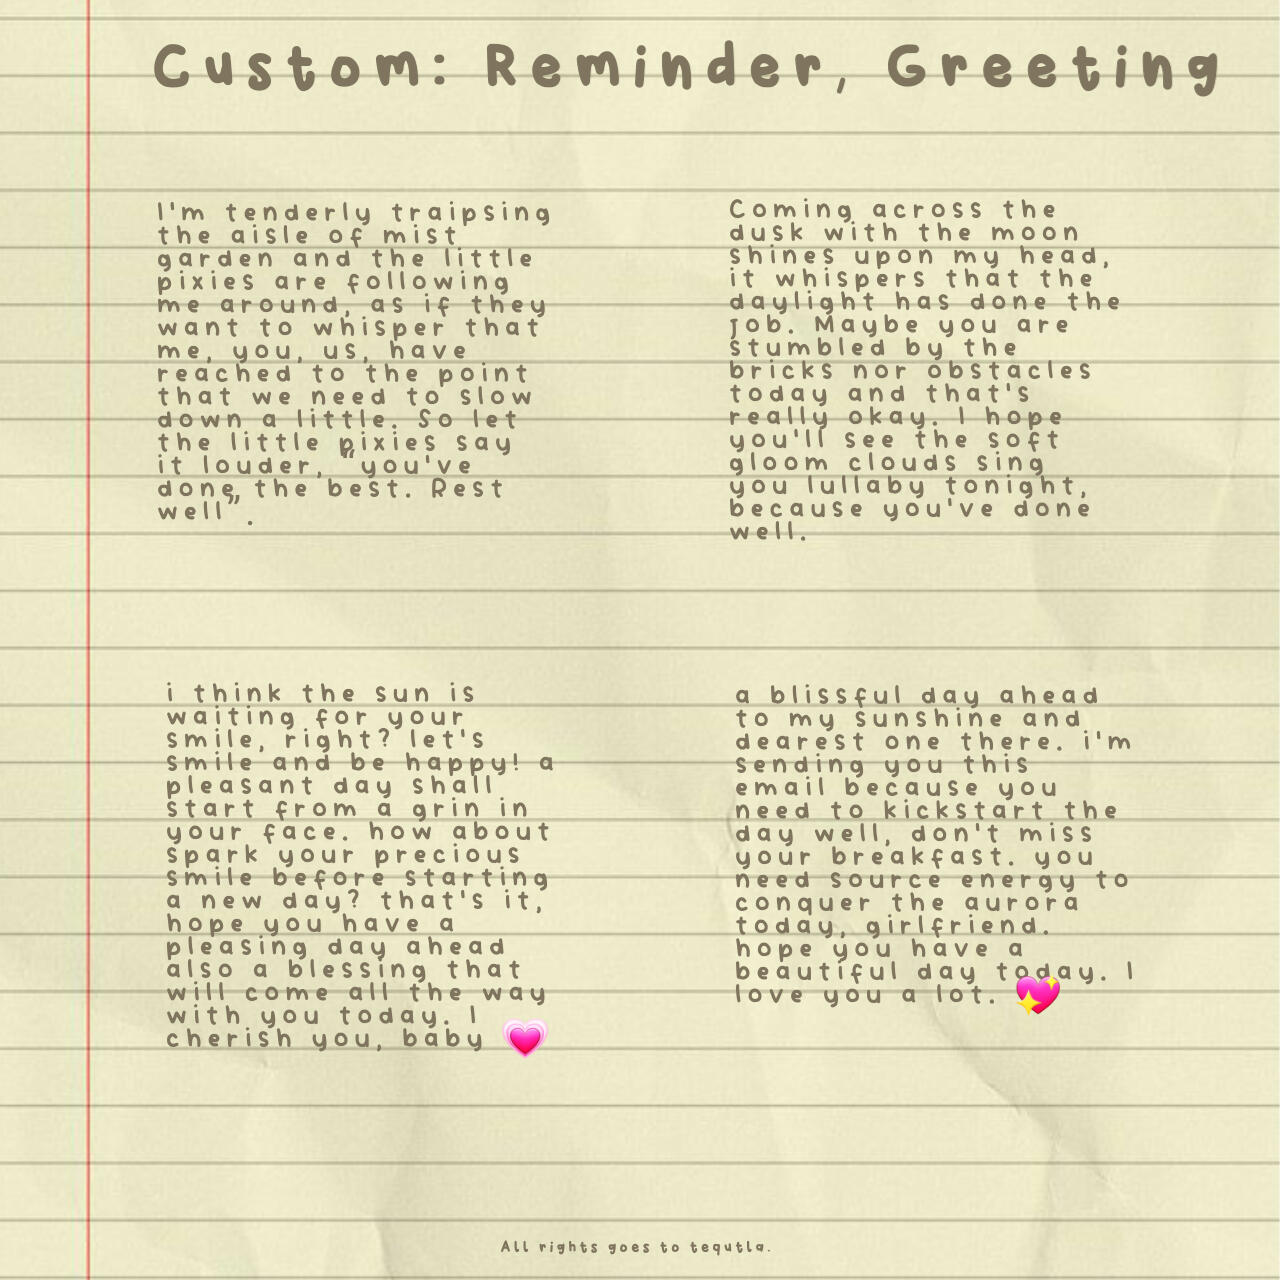 Custom: Reminder, Greeting
I'm tenderly traipsing
the aisle of mist
garden and the little
pixies are following
me around, as if they
want to whisper that
me, you, us, have
reached to the point
that we need to slow
down a little. So let
the little pixies say
it louder, “you've
done the best. Rest
well”.
Coming across the
dusk with the moon
shines upon my head,
it whispers that the
daylight has done the
job. Maybe you are
stumbled by the
bricks nor obstacles
today and that's
really okay. I hope
you'll see the soft
gloom clouds sing
you lullaby tonight,
because you've done
well.
i think the sun is
waiting for your
smile, right? let's
smile and be happy! a
pleasant day shall
start from a grin in
your face. how about
spark your precious
smile before starting
a new day? that's it,
hope you have a
pleasing day ahead
also a blessing that
will come all the way
with you today. I
cherish you, baby 💗
a blissful day ahead
to my sunshine and
dearest one there. i'm
sending you this
email because you
need to kickstart the
day well, don't miss
your breakfast. you
need source energy to
conquer the aurora
today, girlfriend.
hope you have a
beautiful day today. I
love you a lot. 💖
All rights goes to tequtla.